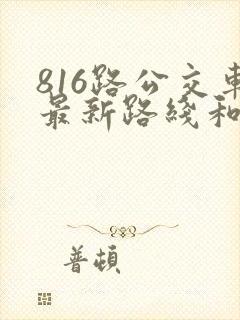 816路公交車
最新路綫和
普頓